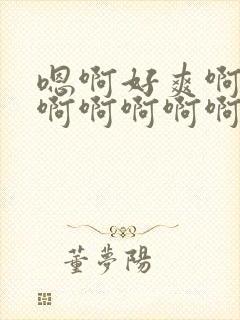 嗯啊好爽啊
啊啊啊啊啊
董夢陽